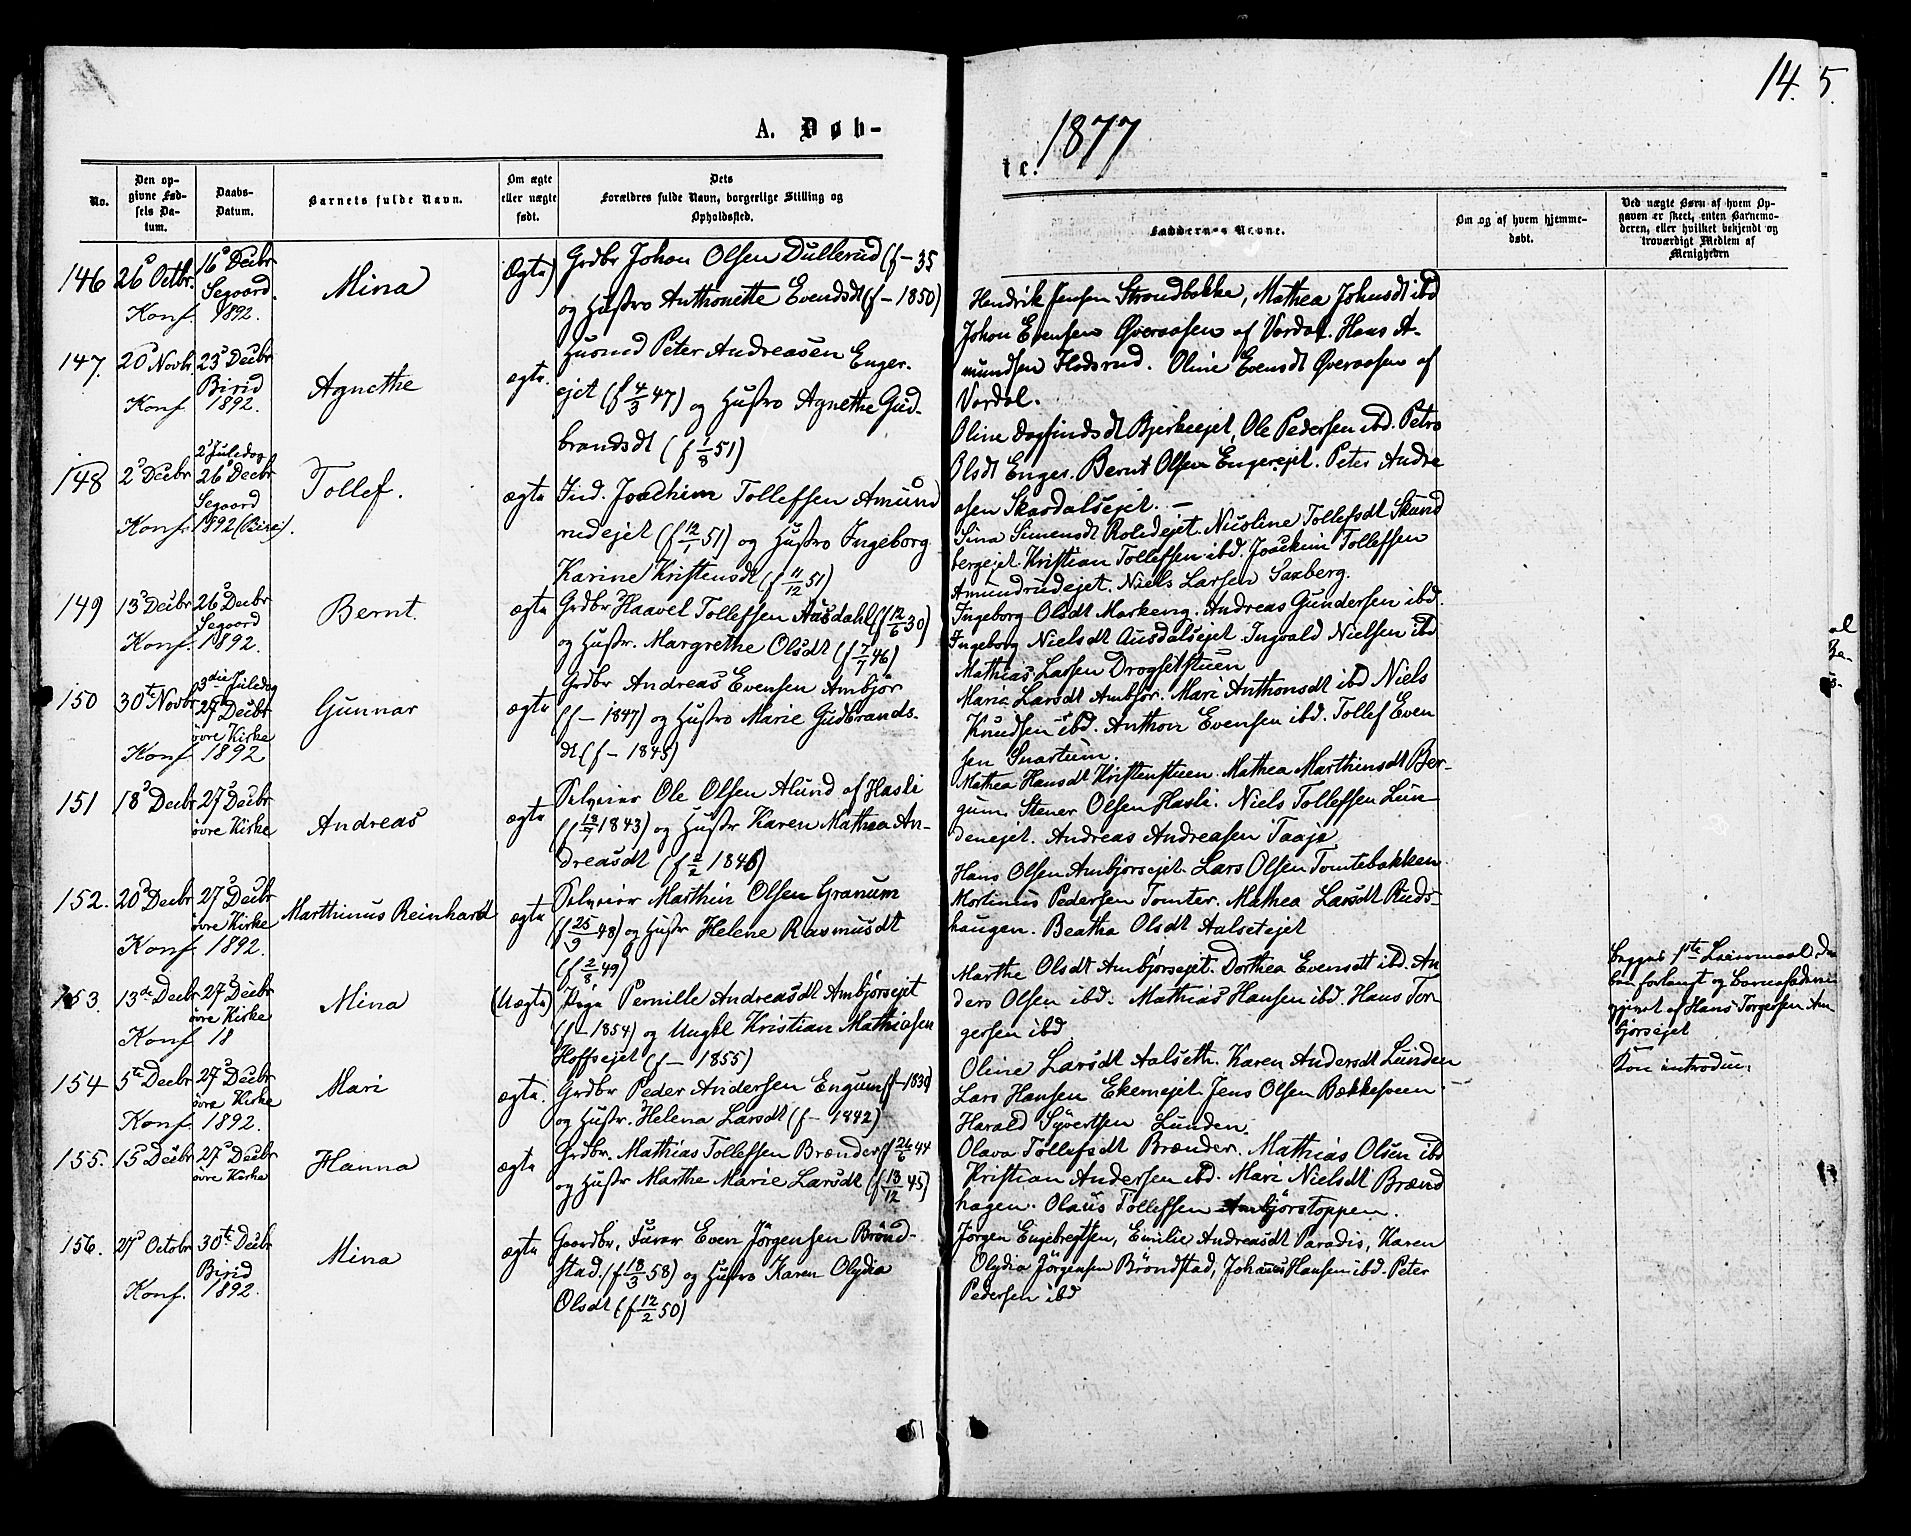 14.
5.
A. Døb-
te.
1877
No.
Den op-
givne Fød-
sels Da-
tum.
Daabs-
Datum.
Barnets fulde Navn.
Om ægte
eller uægte
født.
Dets
Forældres fulde Navn, borgerlige Stilling og
Opholdssted.
Faddernes Navne.
Om og af hvem hjemme-
døbt.
Ved uægte Børn af hvem Op-
gaven er skeet, enten Barnemo-
deren, eller hvilket bekjendt og
troværdigt Medlem af
Menigheden
146 26 Octbr. 16 Decbr
Segaard.
Konf. 1892.
Mina
Ægte
Grdbr Johan Olsen Dullerud (f - 35
og Hustro Anthonette Evensdt (f - 1850)
Hendrik Jensen Strandbakke, Mathea Johnsdt ibd
Johan Evensen Øveraasen af Vardal. Hans A-
mundsen Fladsrud. Oline Evensdt Øveraasen af
Vardal.
147. 20 Novbr 23 Decbr
Birid
Konf 1892.
Agnethe
ægte.
Husmd Peter Andreasen Enger-
ejet (f 4/3 47) og Hustro Agnethe Gud-
brandsdt (f 1/8 51)
Oline Dagfindsdt Bjerkeejet, Ole Pedersen ibd. Petro
Olsdt Enger. Bernt Olsen Engerejet. Peter Andre
asen Skardalsejet. -
148 2 Decbr 2 Juledag
26 Decbr
Segaard
Konf. 1892 (Biri).
Tollef.
ægte
Ind. Joachim Tollefsen Amund
rudejet (f 12/1 51) og Hustro Ingeborg
Karine Kristensdt (f 11/12 51)
Sina Simensdt Roledejet. Nicoline Tollefsdt Skund
bergejet. Kristian Tollefsen ibd. Joachim Tollefsen
Amundrudejet. Niels Larsen Saxberg.
149 13 Decbr 26 Decbr
Segaard
Konf. 1892.
Bernt.
ægte
Grdbr Haavel Tollefsen Ausdahl (f 12/6 30)
og Hustr. Margrethe Olsdt (f 7/7 46)
Ingeborg Olsdt Markeng. Andreas Gundersen ibd.
Ingeborg Nielsdt Ausdalsejet. Ingvald Nielsen ibd
Mathias Larsen Drogsetstuen
150 30te Novbr 3die Juledag
27 Decbr
øvre Kirke
Konf 1892
Gunnar
ægte
Grdbr Andreas Evensen Ambjør
(f - 1847) og Hustro Marie Gudbrands-
dt (f - 1845)
Marie Larsdt Ambjør. Mari Anthonsdt ibd Niels
Knudsen ibd. Anthon Evensen ibd. Tollef Even
sen Snartum.
151 18 Decbr 27 Decbr
øvre Kirke
Andreas
ægte
Selveier Ole Olsen Alund af Hasli
(f 18/7 1843) og Hustr Karen Mathea An-
dreasdt (f 2/2 1846)
Mathea Hansdt Kristenstuen. Mathea Marthinsdt Ber-
gum. Stener Olsen Hasli. Niels Tollefsen Lun-
denejet. Andreas Andreasen Taaje
152. 20 Decbr 27 Decbr
øvre Kirke
Konf 1892.
Marthinus Reinhard
ægte
Selveier Marthin Olsen Granum
(f 25/9 48) og Hustr Helene Rasmusdt
(f 2/8 49)
Hans Olsen Ambjørsejet. Lars Olsen Tomtebakken
Martinus Pedersen Tomter. Mathea Larsdt Ruds-
haugen. Beatha Olsdt Aalsetejet
153. 13de Decbr 27 Decbr
øvre Kirke
Konf 18
Mina
(Uægte)
Pige Pernille Andreasdt Ambjørsejet
(f - 1854) og Ungkl Kristian Mathiasen
Hoffsejet (f - 1855)
Marthe Olsdt Ambjørsejet. Dorthea Evensdt ibd. An
ders Olsen ibd. Mathias Hansen ibd. Hans Tor-
gersen ibd
Begges 1ste Leiermaal. Daa
ben forlangt og Barnefaderen
opgivet af Hans Torgersen Am
bjørsejet
Kon introdu.
154 5te Decbr 27 Decbr
øvre Kirke
Konf. 1892.
Mari
ægte.
Grdbr Peder Andersen Engum (f - 1839)
og Hustr. Helena Larsdt (f - 1842)
Oline Larsdt Aalseth. Karen Andersdt Lunden
Lars Hansen Ekernejet. Jens Olsen Bækkesveen
Harald Syvertsen Lunden.
155. 15 Decbr 27 Decbr
øvre Kirke
Hanna
ægte
Grdbr. Mathias Tollefsen Brænder (f 26/6 44
og Hustr Marthe Marie Larsdt (f 13/12 45)
Olava Tollefsdt Brænder. Mathias Olsen ibd
Kristian Andersen ibd. Mari Nielsdt Brænd
hagen. Olaus Tollefsen Ambjørstoppen.
156. 27 Octobr 30te Decbr
Birid
Konf. 1892.
Mina
ægte
Gaardbr, Furer Even Jörgensen Brönd-
stad. (f 18/3 58) og Hustro Karen Olydia
Olsdt (f 12/2 50)
Jørgen Engebregtsen, Emilie Andreasdt Paradis, Karen
Olydia Jørgensen Bröndstad, Johannes Hansen ibd. Peter
Pedersen ibd